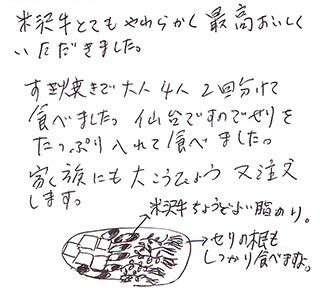 米沢牛とてもやわらかく最高おいしく
いただきました。
すき焼きで大人4人2回分けて
食べました。仙台ですのでせりを
たっぷり入れて食べました。
家族にも大こうひょう又注文
します。
米沢牛ちょうどよい脂のり。
セリの根も
しっかり食べますよ。